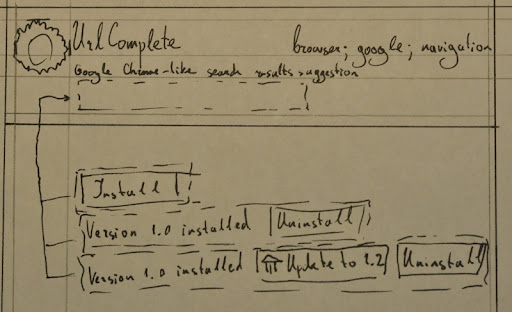 UrlComplete browser; google; navigation
Google Chrome-like search results suggestion
Install
Version 1.0 installed Uninstall
Version 1.0 installed Update to 1.2 Uninstall